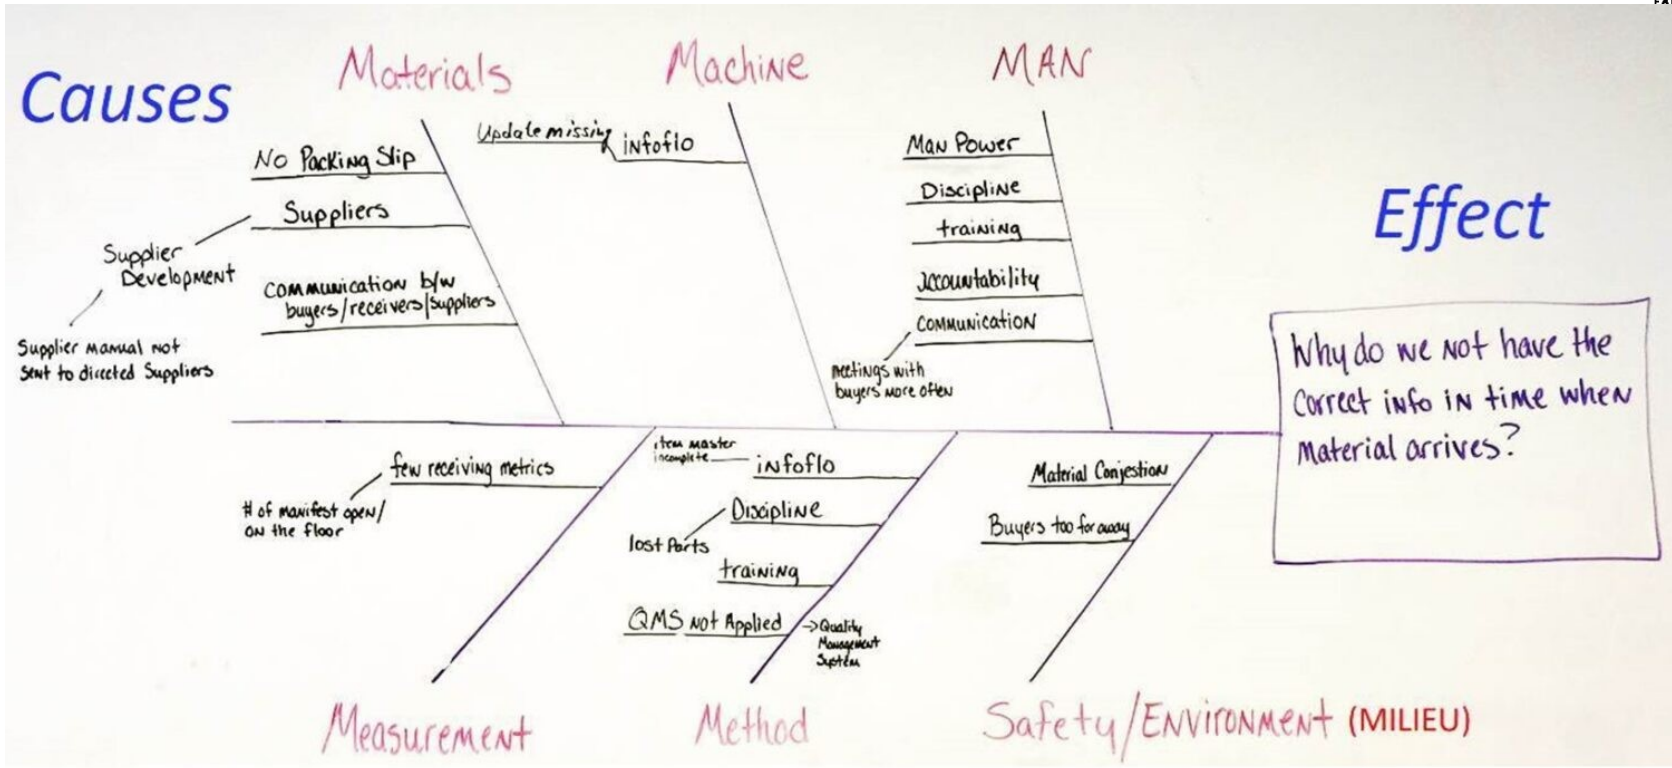 Causes
Materials
Machine
MAN
No Packing Slip
Suppliers
Supplier
Development
Supplier manual not
sent to directed Suppliers
Communication b/w
buyers/receivers/suppliers
Update missing
infoflo
Man Power
Discipline
training
accountability
Communication
meetings with
buyers more often
Effect
Why do we not have the
correct info in time when
Material arrives?
few receiving metrics
# of manifest open/
on the floor
item master
incomplete
infoflo
Discipline
lost Parts
training
QMS not Applied
→Quality
Management
System
Material Conjestion
Buyers too far away
Measurement
Method
Safety/Environment (MILIEU)